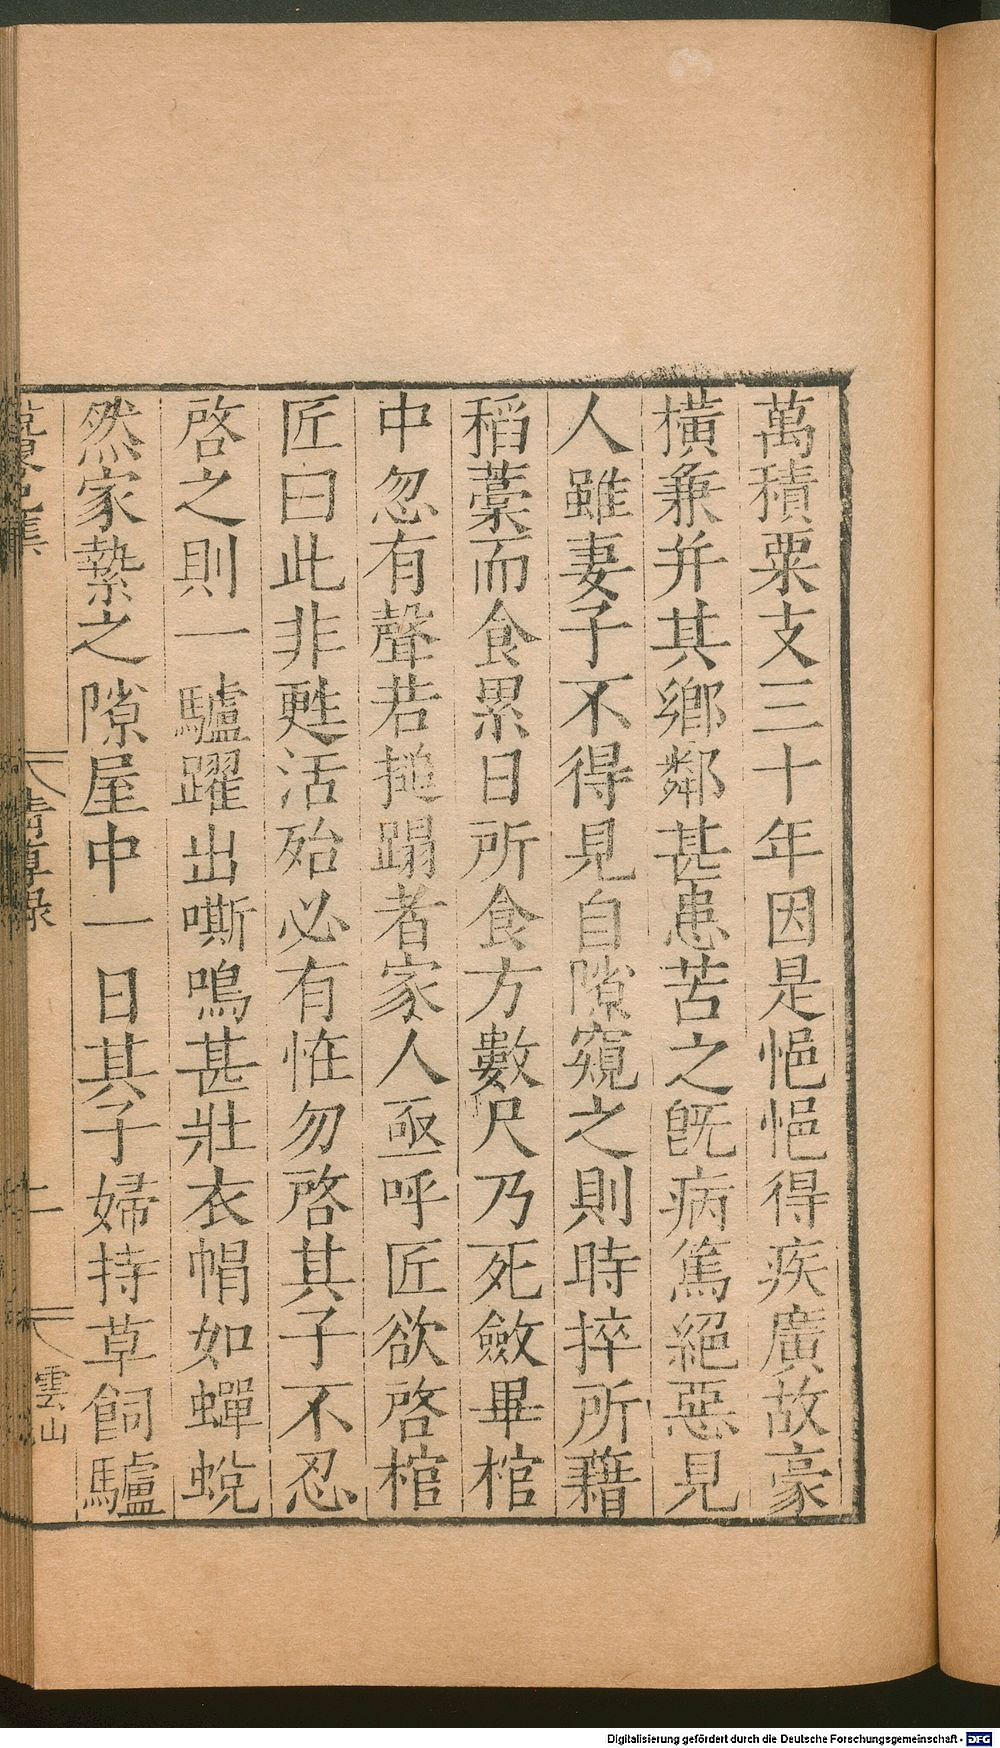 萬積粟支三十年因是悒悒得疾廣故豪
橫兼并其鄉鄰甚患苦之旣病篤絕惡見
人雖妻子不得見自隙窺之則時捽所藉
稻藁而食累日所食方數尺乃死斂畢棺
中忽有聲若搥蹋者家人亟呼匠欲啓棺
匠曰此非甦活殆必有恠勿啓其子不忍
啓之則一驢躍出嘶鳴甚壯衣帽如蟬蛻
然家縶之隙屋中一日其子婦持草飼驢
清尊錄
二
雲山
Digitalisierung gefördert durch die Deutsche Forschungsgemeinschaft - DFG